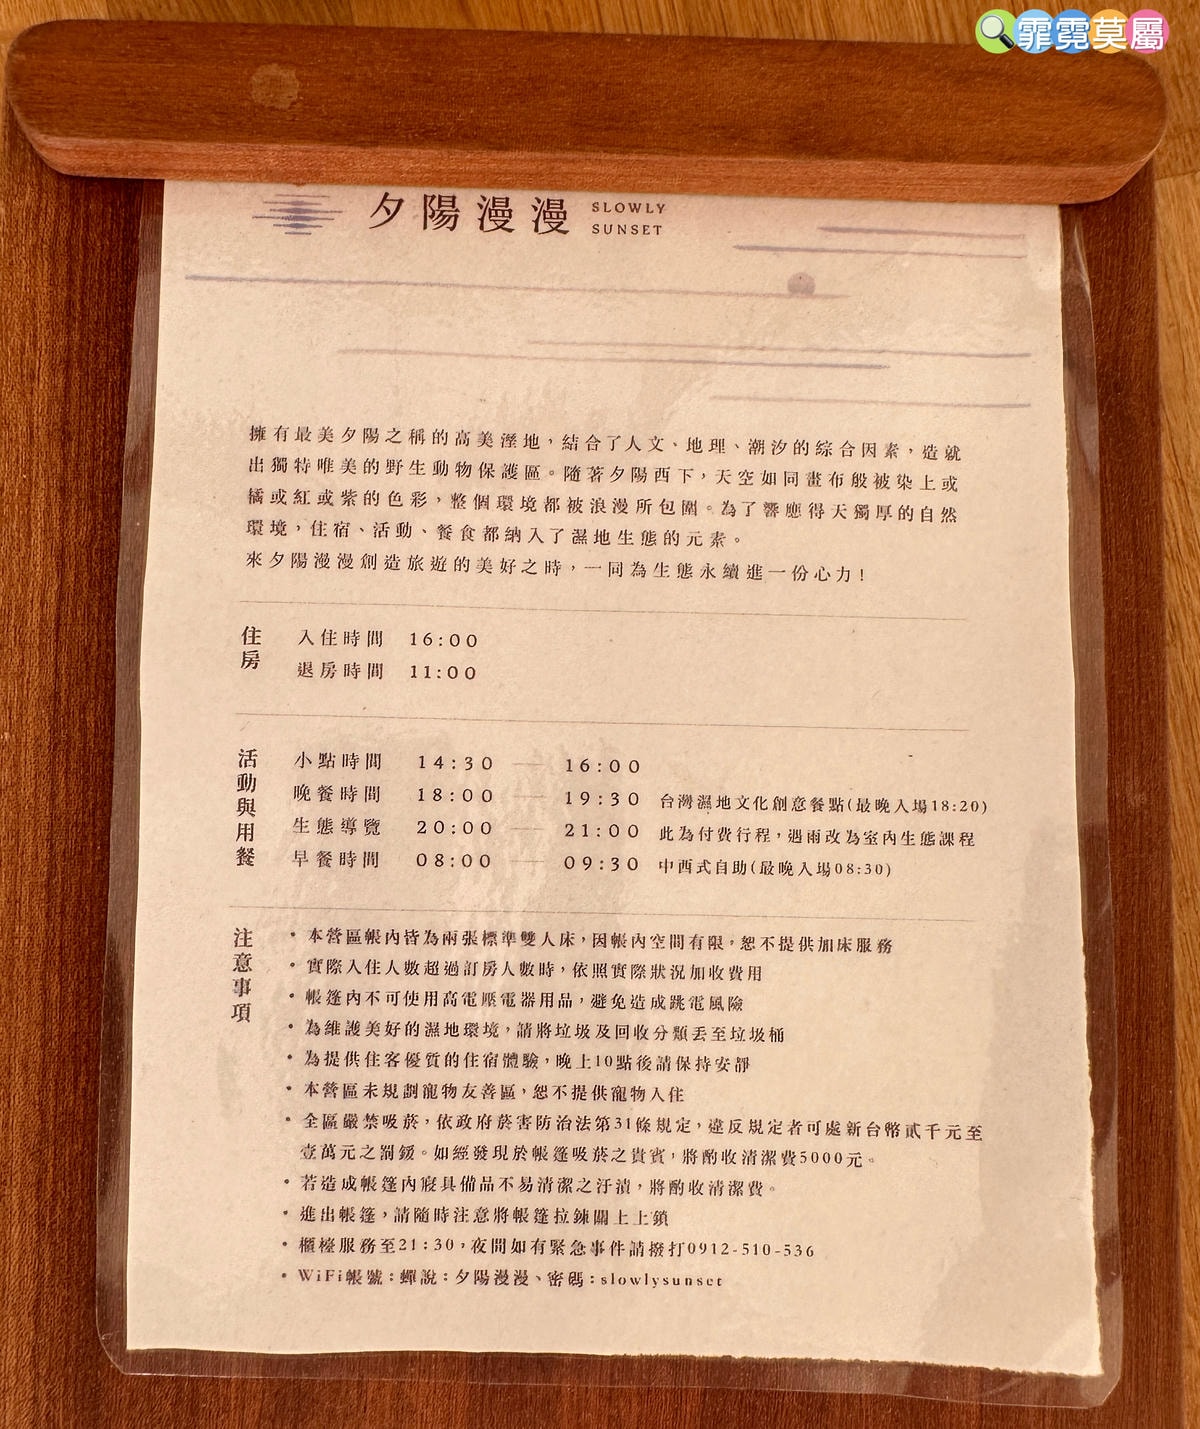 霏霓莫屬
夕陽漫漫 SLOWLY SUNSET
擁有最美夕陽之稱的高美溼地，結合了人文、地理、潮汐的綜合因素，造就
出獨特唯美的野生動物保護區。隨著夕陽西下，天空如同畫布般被染上或
橘或紅或紫的色彩，整個環境都被浪漫所包圍。為了響應得天獨厚的自然
環境，住宿、活動、餐食都納入了濕地生態的元素。
來夕陽漫漫創造旅遊的美好之時，一同為生態永續進一份心力！
住房
入住時間 16:00
退房時間 11:00
活動與用餐
小點時間 14:30 — 16:00
晚餐時間 18:00 — 19:30 台灣濕地文化創意餐點(最晚入場18:20)
生態導覽 20:00 — 21:00 此為付費行程，遇雨改為室內生態課程
早餐時間 08:00 — 09:30 中西式自助(最晚入場08:30)
注意事項
• 本營區帳內皆為兩張標準雙人床，因帳內空間有限，恕不提供加床服務
• 實際入住人數超過訂房人數時，依照實際狀況加收費用
• 帳篷內不可使用高電壓電器用品，避免造成跳電風險
• 為維護美好的濕地環境，請將垃圾及回收分類丟至垃圾桶
• 為提供住客優質的住宿體驗，晚上10點後請保持安靜
• 本營區未規劃寵物友善區，恕不提供寵物入住
• 全區嚴禁吸菸，依政府菸害防治法第31條規定，違反規定者可處新台幣貳千元至
壹萬元之罰鍰。如經發現於帳篷吸菸之貴賓，將酌收清潔費5000元。
• 若造成帳篷內寢具備品不易清潔之汙漬，將酌收清潔費。
• 進出帳篷，請隨時注意將帳篷拉鍊關上上鎖
• 櫃檯服務至21:30，夜間如有緊急事件請撥打0912-510-536
• WiFi帳號：蟬說：夕陽漫漫、密碼：slowlysunset